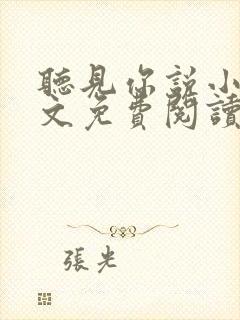 聽見你說小
文免費閱讀
張光